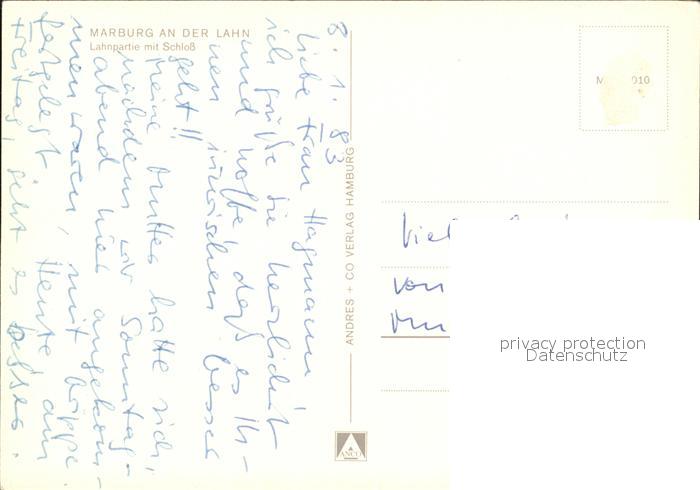 MARBURG AN DER LAHN
Lahnpartie mit Schloß
8. 1. 83
Liebe Frau Hagmann
ich grüße Sie herzlichst
und hoffe, daß es Ih-
nen inzwischen besser
geht!!
Meine Mutter hatte sich,
nachdem wir Sonntag-
abend hier angekom-
men waren, mit Grippe
festgelegt. Heute, am
Freitag, geht es besser.
ANDRES + CO VERLAG HAMBURG
ANCO
M 010
Viel
von
privacy protection
Datenschutz